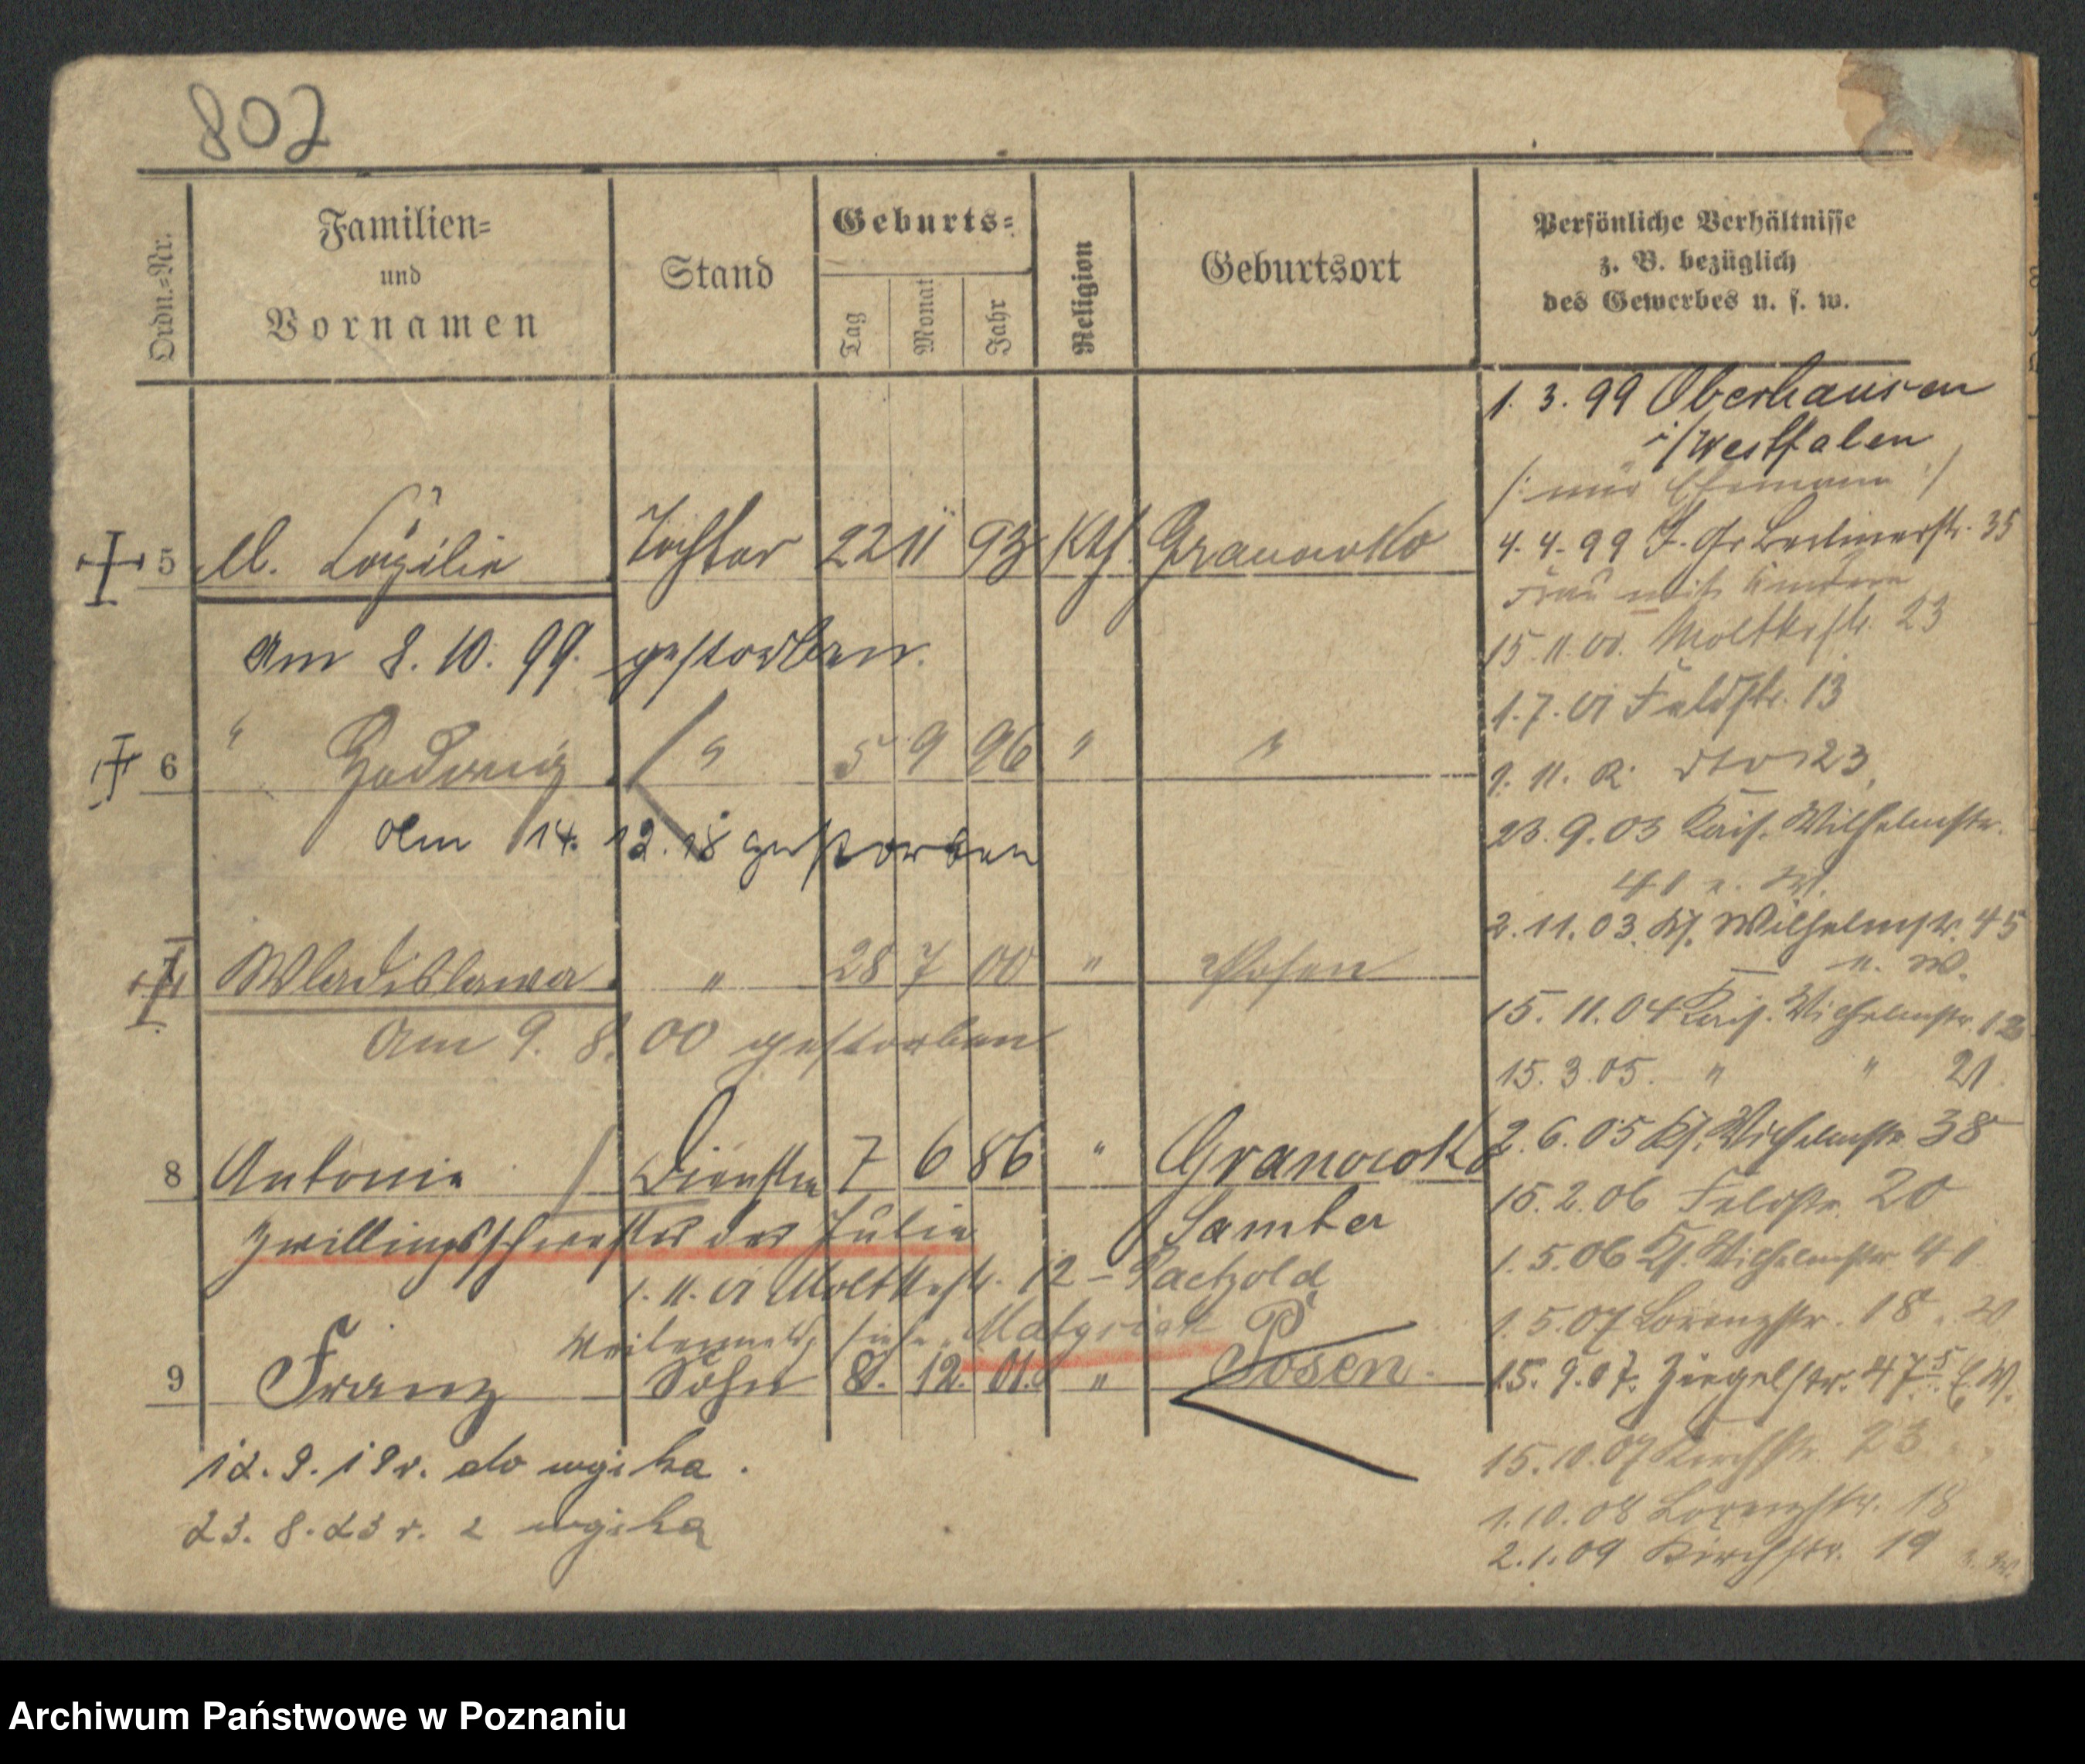 802
Ordn.=Nr.
Familien=
und
Vornamen
Stand
Geburts=
Tag
Monat
Jahr
Religion
Geburtsort
Persönliche Verhältnisse
z. B. bezüglich
des Gewerbes u. s. w.
5 Cäzilie Tochter 22 11 93 Kth. Granowko
Am 8. 10. 99. gestorben.
6 " Hedwig " 5 9 96 " "
Am 14. 12. 18 gestorben
7 Wladislawa " 28 7 00 " Posen
Am 9. 8. 00 gestorben
8 Antonie 7 6 86 " Granowko
Samter
Zwillingsschwester der Julie
1. 11. 01 Moltkestr. 12 - Paetzold
siehe
9 Franz Sohn 8. 12. 01. " Posen.
12. 9. 19 r. do wojska.
23. 8. 23 r. z wojska
1. 3. 99 Oberhausen
i/Westfalen
/: nur Ehemann :/
4. 4. 99 Berlinerstr. 35
Frau mit Kindern
15. 11. 00. Moltkestr. 23
1. 7. 01 Feldstr. 13
1. 11. 02. dto 23
23. 9. 03 Kais. Wilhelmstr.
41
2. 11. 03. Ks. Wilhelmstr. 45
15. 11. 04 Kais. Wilhelmstr. 12
15. 3. 05. " " 21
2. 6. 05 Ks. Wilhelmstr. 38
15. 2. 06 Feldstr. 20
1. 5. 06 Ks. Wilhelmstr.
1. 5. 07 Lorenzstr. 18
15. 9. 07. Ziegelstr.
15. 10. 07 Kirchstr. 23
1. 10. 08 Lorenzstr. 18
2. 1. 09 Kirchstr. 19
Archiwum Państwowe w Poznaniu